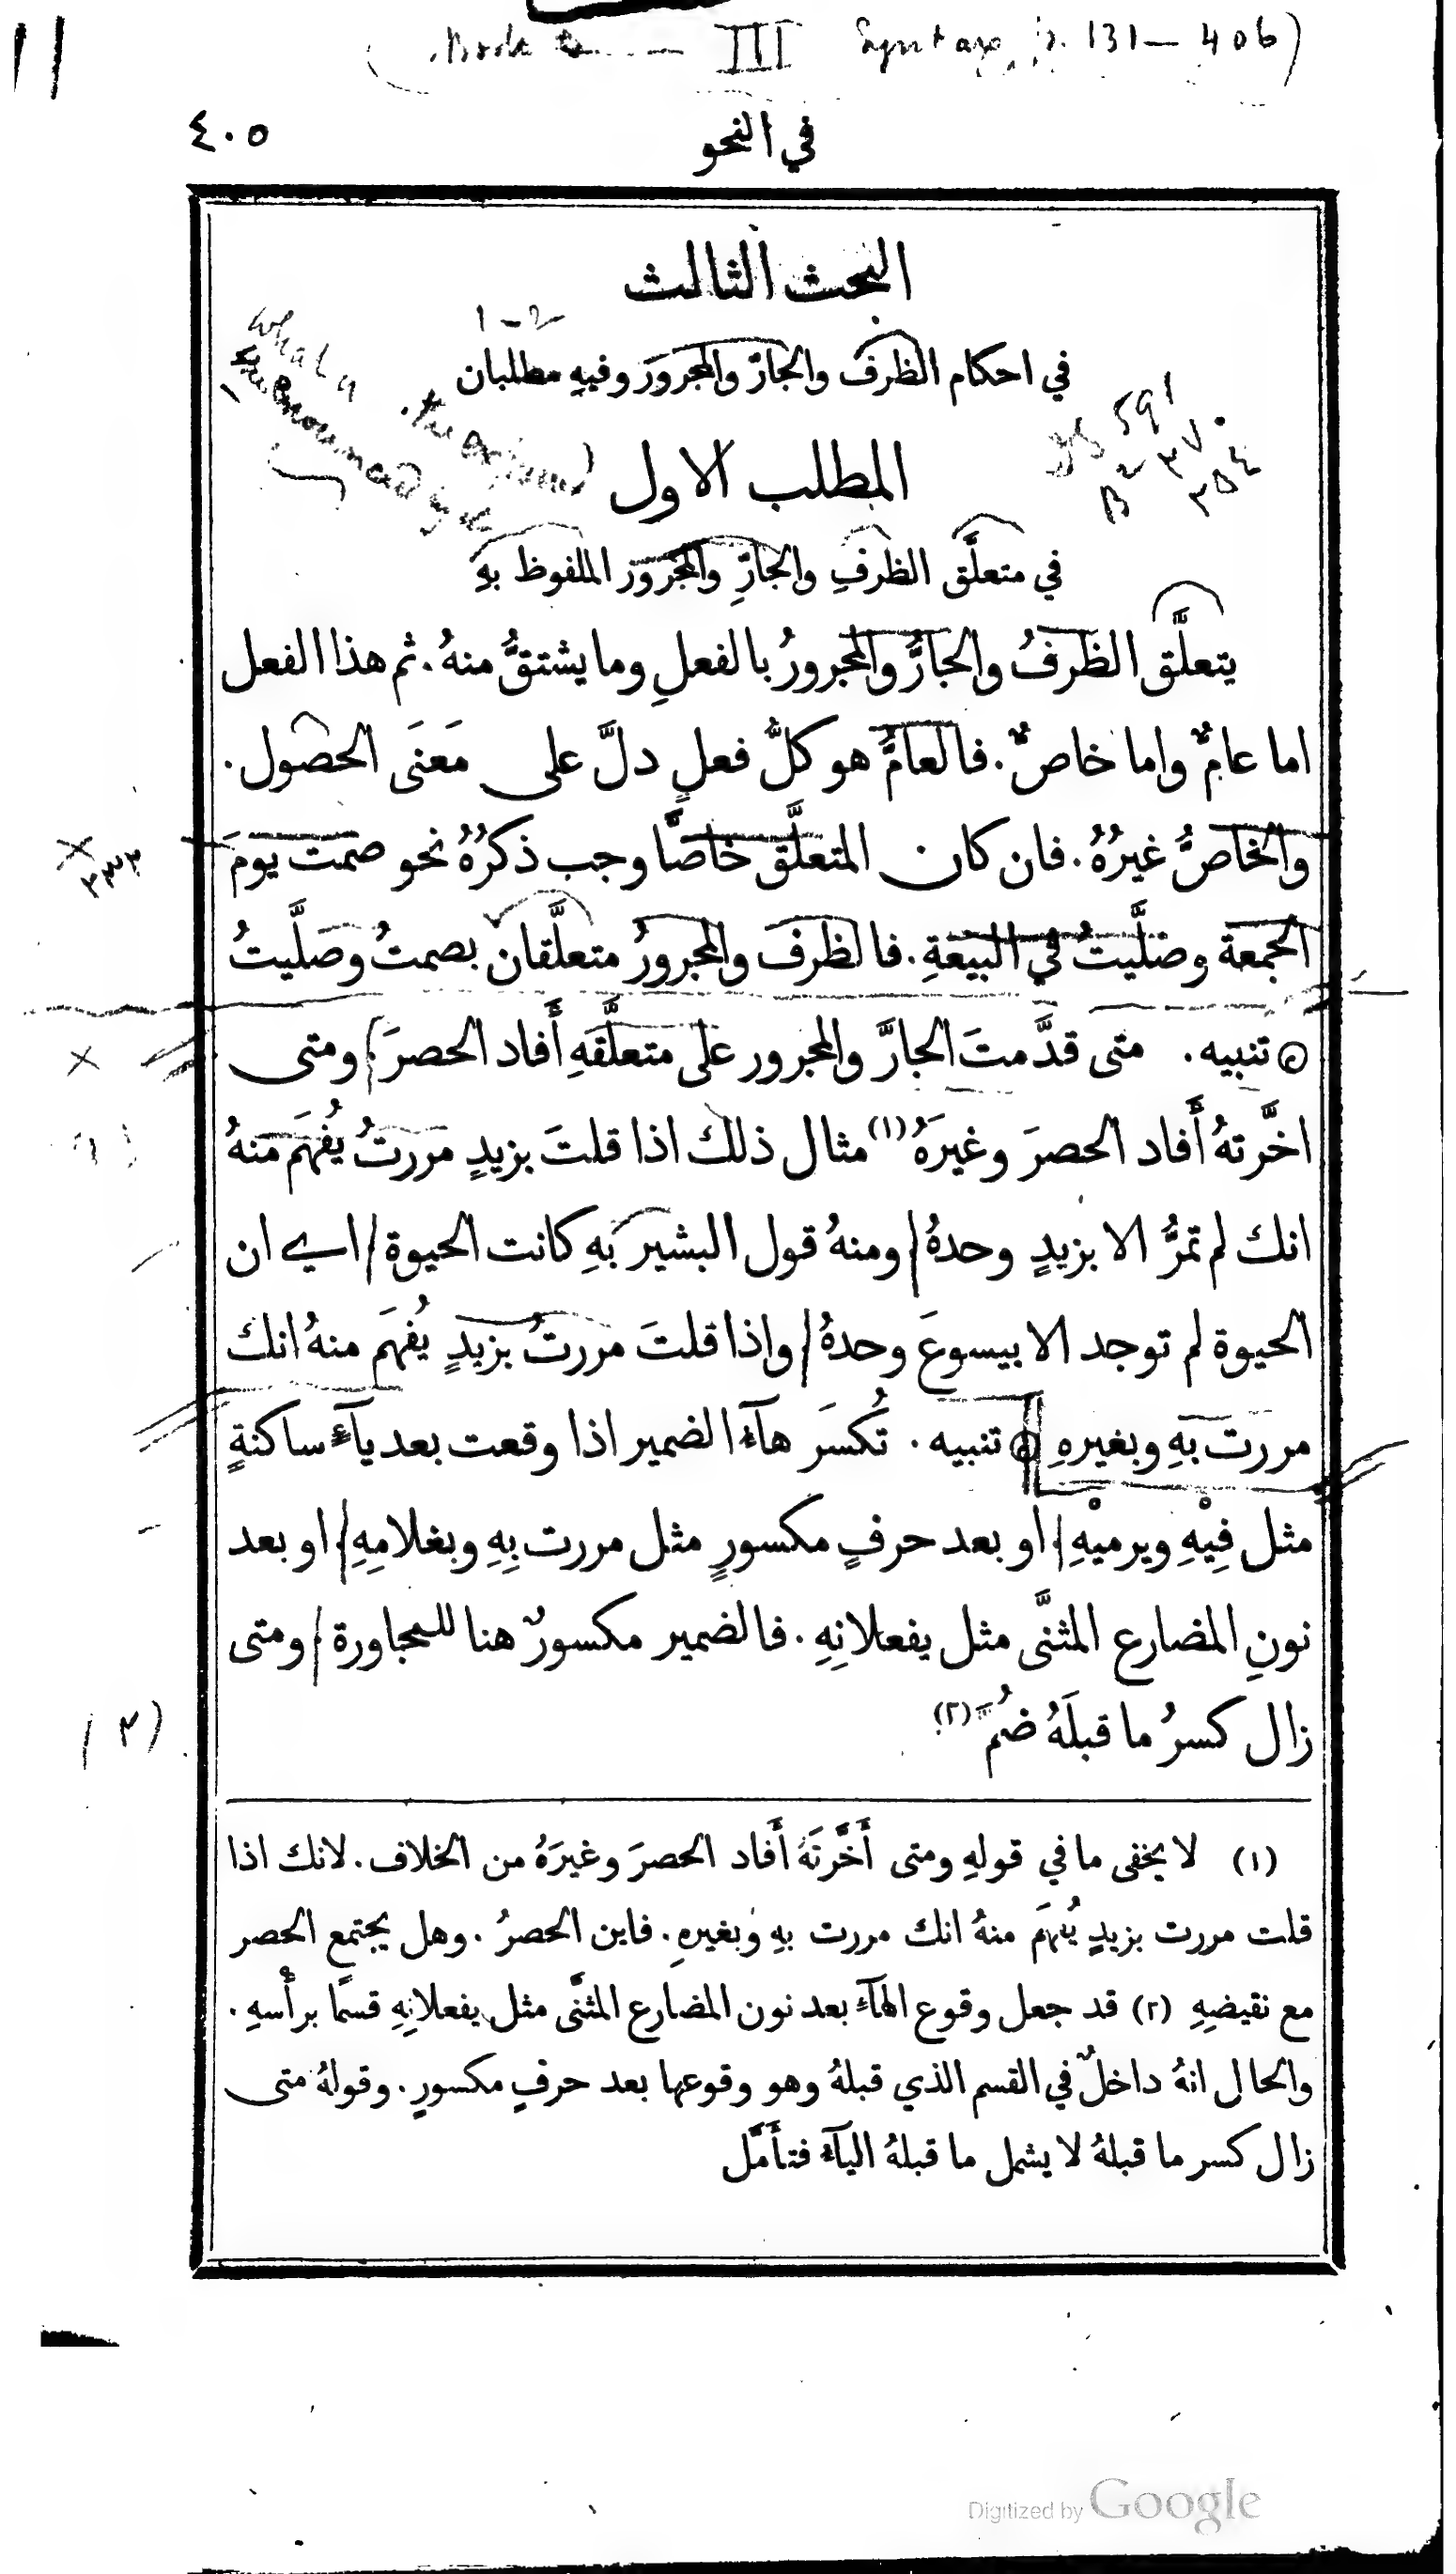 III Syntax p. 131 — 406)
في النحو ٤٠٥
البحث الثالث
في احكام الظرف والجارّ والمجرور وفيهِ مطلبان
المطلب الاول
في متعلَّق الظرفِ والجارِّ والمجرور الملفوظ بهِ
يتعلَّق الظرفُ والجارُّ والمجرورُ بالفعلِ وما يشتقُّ منهُ. ثم هذا الفعل
اما عامٌّ واما خاصٌّ. فالعامُّ هو كلُّ فعلٍ دلَّ على مَعنَى الحصول.
والخاصُّ غيرُهُ. فان كان المتعلَّق خاصًّا وجب ذكرُهُ نحو صمت يومَ
الجمعة وصلَّيتُ في البيعةِ. فالظرفَ والمجرورُ متعلَّقان بصمتُ وصلَّيتُ
تنبيه. متى قدَّمتَ الجارَّ والمجرور على متعلَّقهِ أَفاد الحصرَ. ومتى
اخَّرتهُ أَفاد الحصرَ وغيرَهُ (١) مثال ذلك اذا قلتَ بزيدٍ مررتُ يُفهَم منهُ
انك لم تمرُّ الا بزيدٍ وحدهُ. ومنهُ قول البشير بهِ كانت الحيوة. اي ان
الحيوة لم توجد الا بيسوعَ وحدهُ. واذا قلتَ مررتُ بزيدٍ يُفهَم منهُ انك
مررت بهِ وبغيرهِ تنبيه. تُكسَر هآءُ الضمير اذا وقعت بعد يآءٍ ساكنةٍ
مثل فِيْهِ ويرميْهِ. او بعد حرفٍ مكسورٍ مثل مررت بِهِ وبغلامِهِ. او بعد
نونِ المضارع المثنَّى مثل يفعلانِهِ. فالضمير مكسورٌ هنا للمجاورة. ومتى
زال كسرُ ما قبلَهُ ضُمَّ (٢)
(١) لا يخفى ما في قولهِ ومتى أَخَّرتَهُ أَفاد الحصرَ وغيرَهُ من الخلاف. لانك اذا
قلت مررت بزيدٍ يُفهَم منهُ انك مررت بهِ وبغيرهِ. فاين الحصرُ. وهل يجتمع الحصر
مع نقيضِهِ (٢) قد جعل وقوع الهآءِ بعد نون المضارع المثنَّى مثل يفعلانِهِ قسمًا برأْسهِ.
والحال انهُ داخلٌ في القسم الذي قبلهُ وهو وقوعها بعد حرفٍ مكسورٍ. وقولهُ متى
زال كسر ما قبلهُ لا يشمل ما قبلهُ اليآءُ فتأَمَّل
Digitized by Google